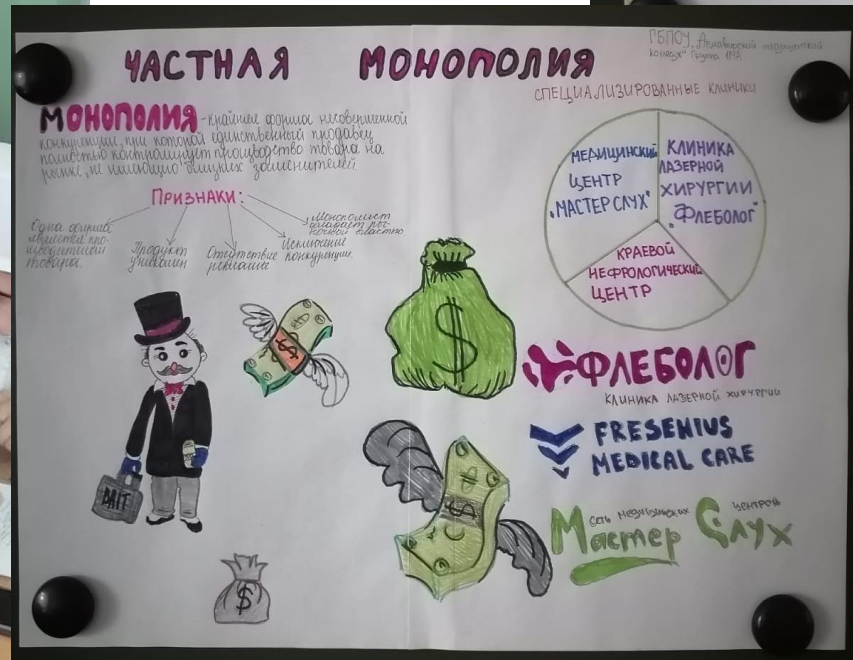 ЧАСТНАЯ МОНОПОЛИЯ
ГБПОУ "Армавирский медицинский
колледж" Группа
МОНОПОЛИЯ - крайняя форма несовершенной
конкуренции, при которой единственный продавец
полностью контролирует производство товара на
рынке, не имеющего близких заменителей.
ПРИЗНАКИ:
Одна фирма
является про-
изводителем
товара.
Продукт
уникален
Отсутствие
рекламы
Исключение
конкуренции.
Монополист
обладает ры-
ночной властью
СПЕЦИАЛИЗИРОВАННЫЕ КЛИНИКИ
МЕДИЦИНСКИЙ
ЦЕНТР
"МАСТЕР СЛУХ"
КЛИНИКА
ЛАЗЕРНОЙ
ХИРУРГИИ
"ФЛЕБОЛОГ"
КРАЕВОЙ
НЕФРОЛОГИЧЕСКИЙ
ЦЕНТР
$
$
$
ФЛЕБОЛОГ
КЛИНИКА ЛАЗЕРНОЙ ХИРУРГИИ
FRESENIUS
MEDICAL CARE
BAIT
$
$
сеть медицинских центров
Мастер Слух